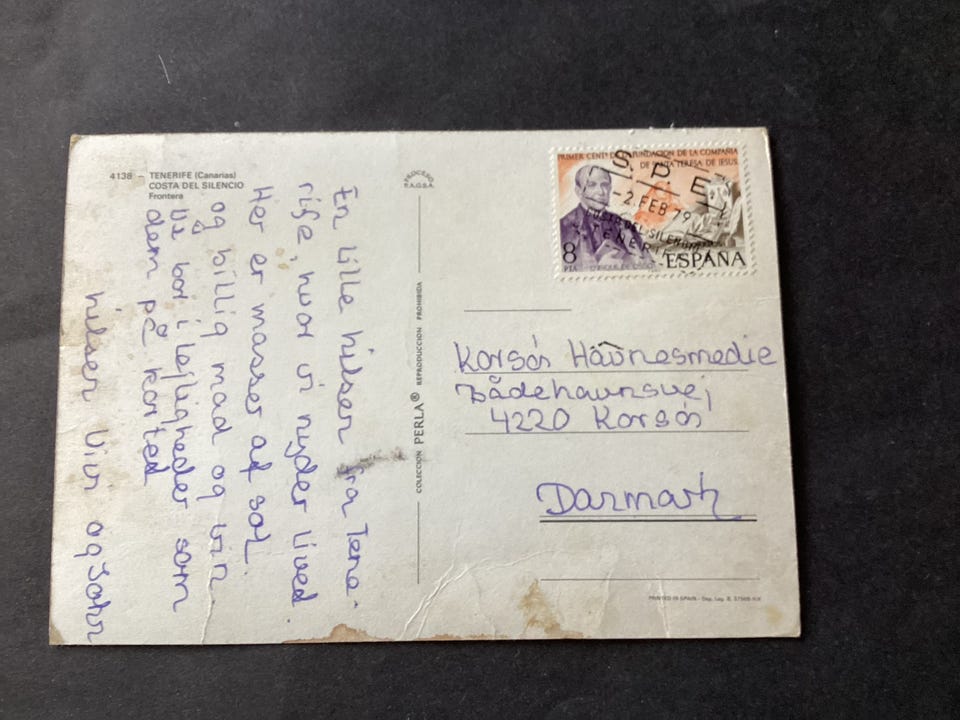 4138 - TENERIFE (Canarias)
COSTA DEL SILENCIO
Frontera
En lille hilsen fra Tene-
rife, hvor vi nyder lived
Her er masser af sol
og billig mad og vin
vi bor i lejligheder som
dem på korted
hilsen Vivi og John
PROCERO
F.A.G.S.A.
COLECCION PERLA® REPRODUCCION PROHIBIDA
PRIMER CENT. DE LA FUNDACION DE LA COMPAÑIA
DE SANTA TERESA DE JESUS
S.P.E.
-2.FEB 79
COSTA DEL SILENCIO
TENERIFE
8
PTA
ENRIQUE DE OSSO
ESPAÑA
Korsør Havnesmedie
Bådehavnsvej
4220 Korsør
Danmark
PRINTED IN SPAIN - Dep. Leg. B.